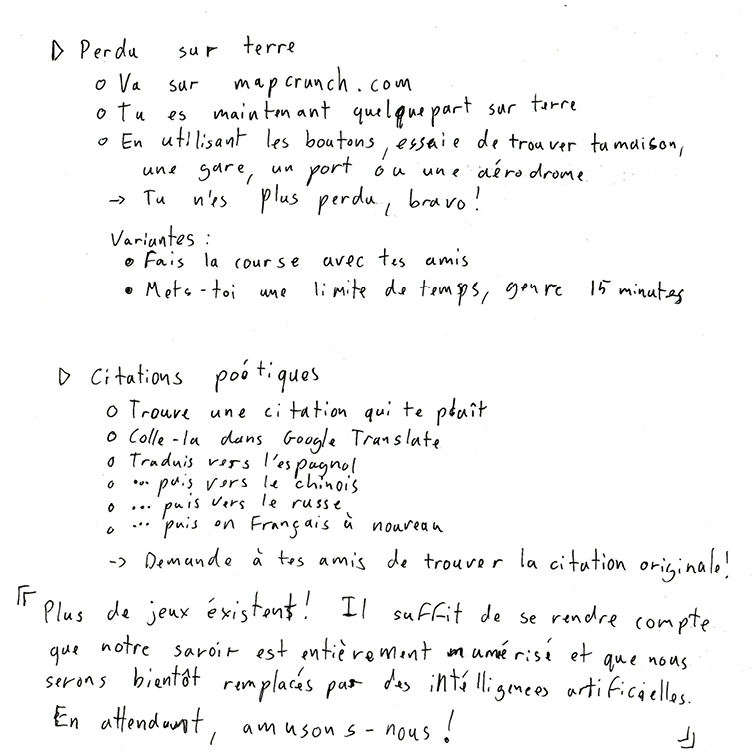 ▷ Perdu sur terre
o Va sur mapcrunch.com
o Tu es maintenant quelquepart sur terre
o En utilisant les boutons, essaie de trouver ta maison,
une gare, un port óu une aérodrome
→ Tu n'es plus perdu, bravo!
Variantes :
• Fais la course avec tes amis
• Mets-toi une limite de temps, genre 15 minutes
▷ Citations poétiques
o Trouve une citation qui te plaît
o Colle-la dans Google Translate
o Traduis vers l'espagnol
o ... puis vers le chinois
o ... puis vers le russe
o ... puis en Français à nouveau
-> Demande à tes amis de trouver la citation originale!
Plus de jeux éxistent! Il suffit de se rendre compte
que notre savoir est entièrement numérisé et que nous
serons bientôt remplacés par des intélligences artificielles.
En attendant, amusons-nous!